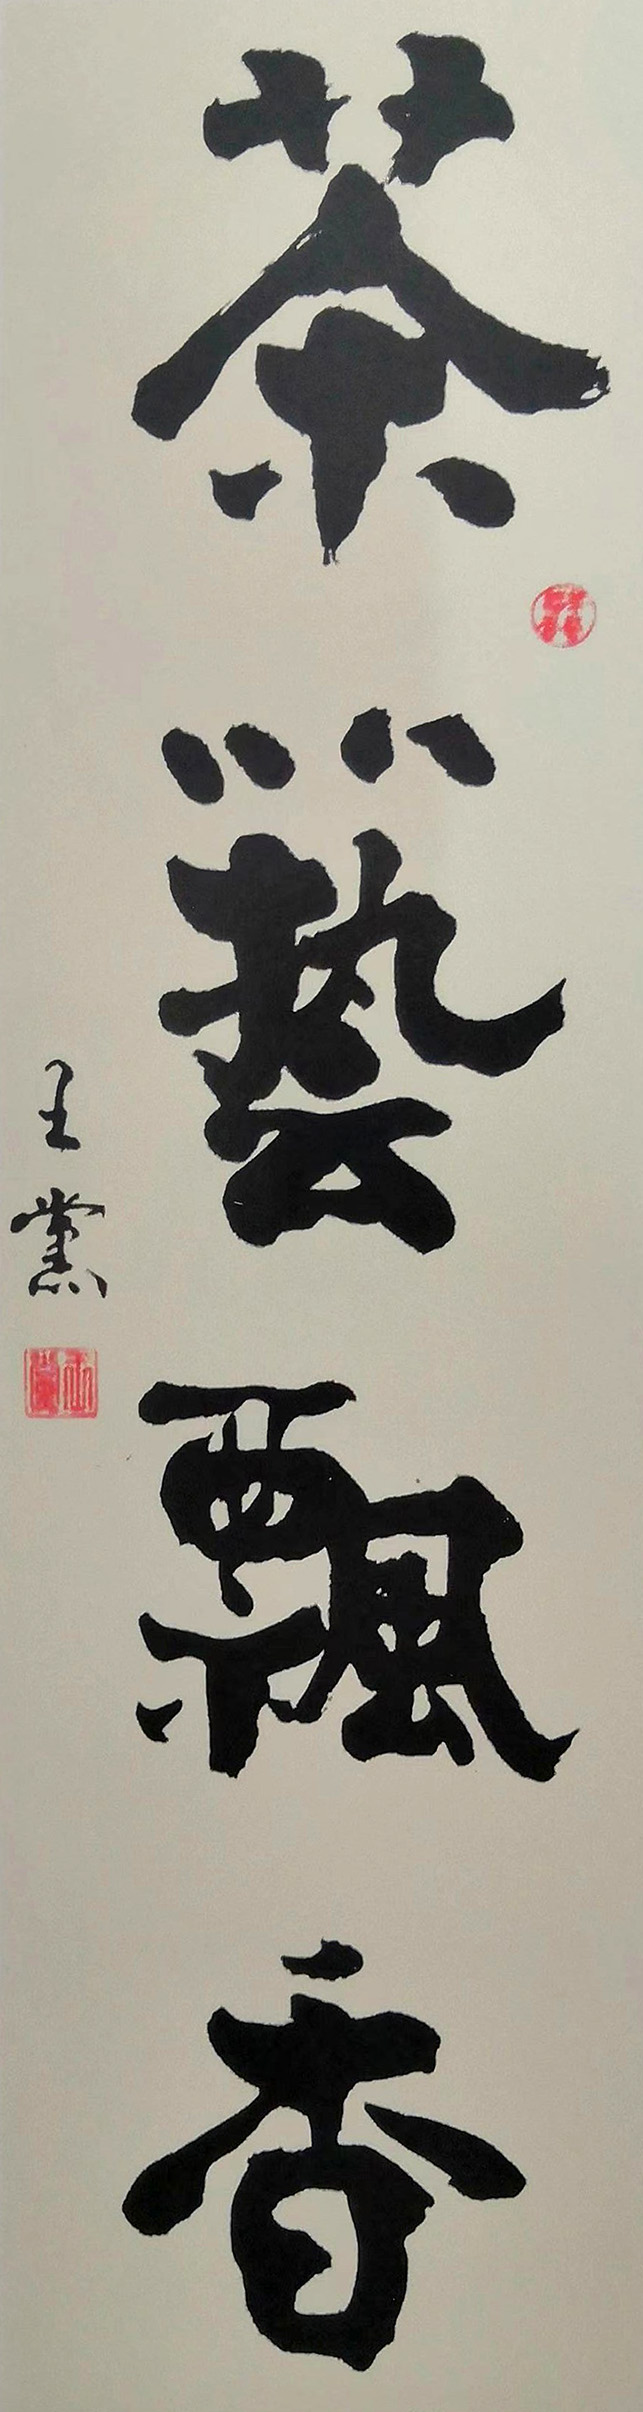 茶藝飄香
王黨